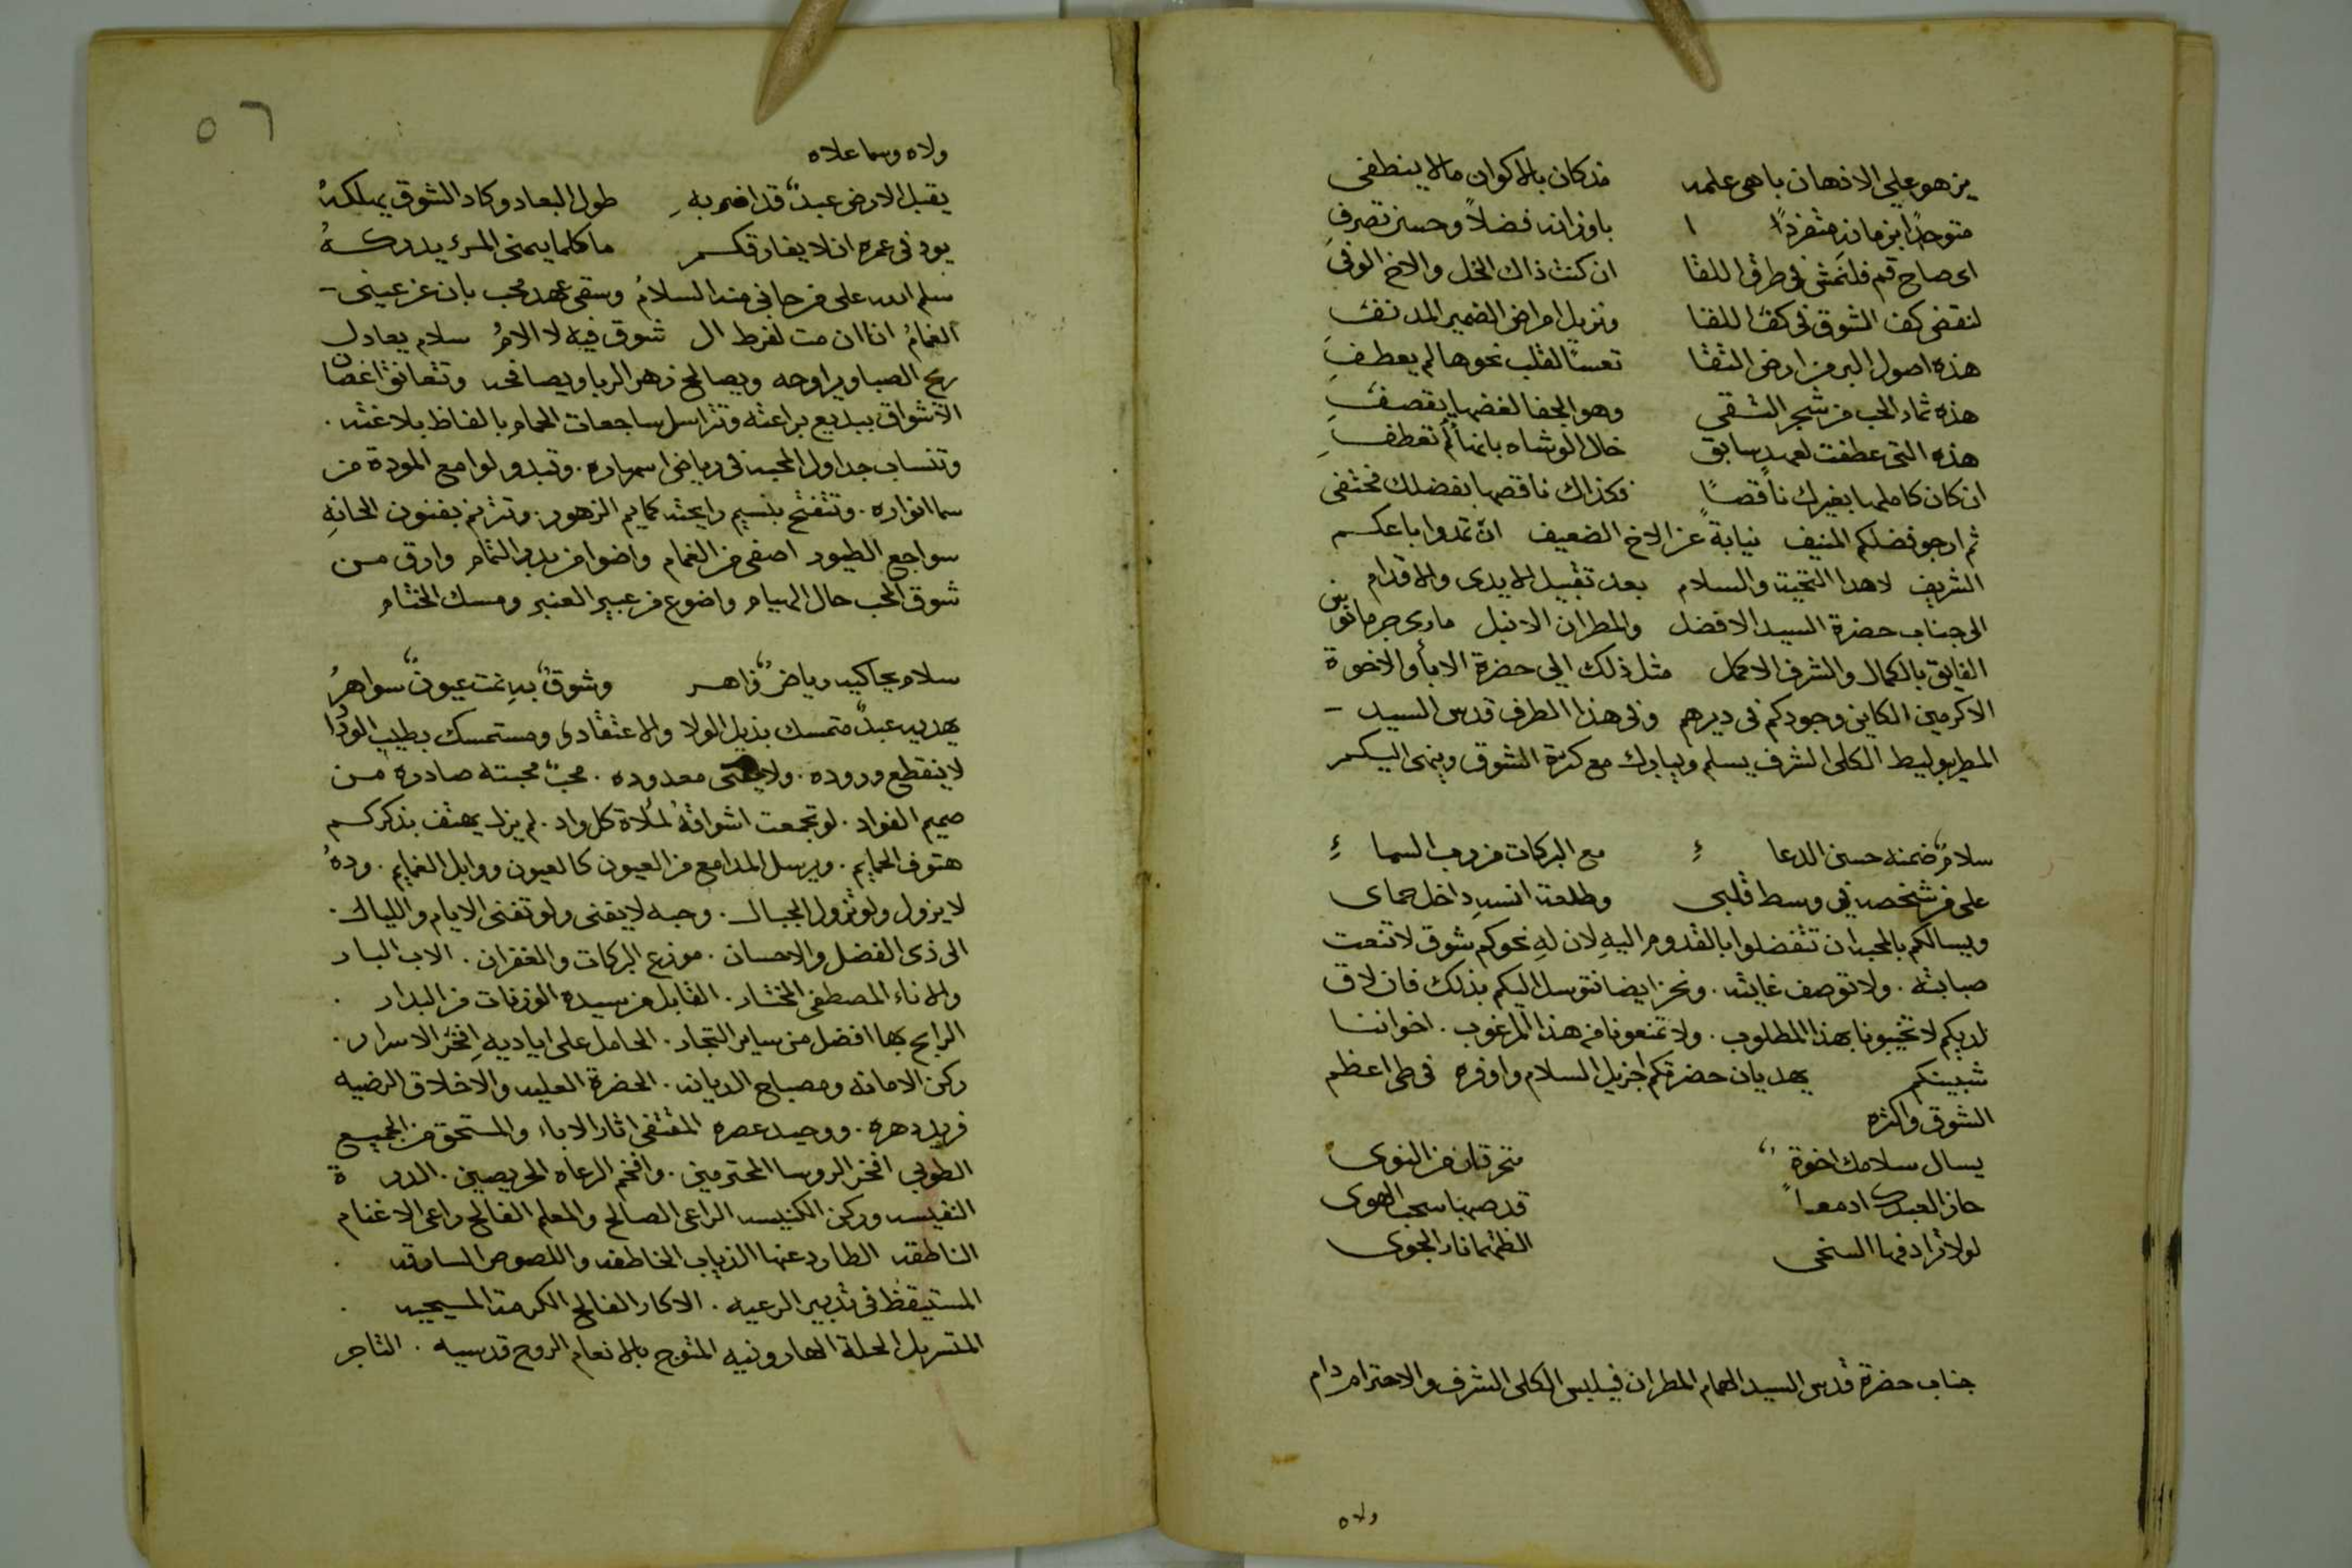 يزهو على الاذهان باهى علمه   مذ كان بالاكوان مالا ينطفى
متوحدًا بزمانهِ متفردًا   ا   باوزانه فضلاً وحسن تصرفِ
اى صاح قم فلنمشى فى طرق اللقا   ان كنت ذاك الخل والاخ الوفى
لنقضى كف الشوق فى كف اللقا   ونزيل امراض الضمير المدنفِ
هذه اصول البر من ارض التقا   تعسًا لقلب نحوها لم يعطفِ
هذه ثمار الحب من شجر التقى   وهو الجفا لغضها يقصفِ
هذه التى عطفت لعهدٍ سابق   خلال الوشاه بانها لم تعطفِ
ان كان كاملها بغيرك ناقصًا   فكذاك ناقصها بفضلك مختفى
ثم ارجو فضلكم المنيف نيابة عن الاخ الضعيف ان تمدوا باعكم
الشريف لاهدا التحيت والسلام بعد تقبيل الايدى والاقدام
الى جناب حضرة السيد الافضل والمطران الانبل مارى جرمانوس
الفايق بالكمال والشرف الاكمل مثل ذلك الى حضرة الابأ والاخوة
الاكرمين الكاين وجودكم فى ديرهم وفى هذا الطرف قدس السيد -
المطربوليط الكلى الشرف يسلم ويبارك مع كثرة الشوق وينهى اليكم
سلامٌ ضمنه حسن الدعا   ءِ   مع البركات من رب السما   ءِ
على من شخصه فى وسط قلبى   وطلعة انسهِ داخل حماى
ويسالكم بالمحبه ان تتفضلوا بالقدوم اليهِ لان لهِ نحوكم شوق لا تنعت
صبابته . ولا توصف غايته . ونحن ايضا نتوسل اليكم بذلك فان لاق
لديكم لا تخيبونا بهذا المطلوب . ولا تمنعونا من هذا المرغوب . اخواننا
شبينكم   يهديان حضرتكم اجزيل السلام واوفره فى طى اعظم
الشوق واكثره
يسال سلامك اخوة   متحرقان من النوى
حاز العبدك ادمعاً   قد صبها سحب الهوى
لولا تزاد فها السخى   الظتهما نار الجوى
جناب حضرة قدس السيد الهمام المطران فيلبس الكلى الشرف والاحترام دام
ولاه
٥٦
ولاه وسما علاه
يقبل الارض عبدٌ قد اضر بهِ   طول البعاد وكاد الشوق يهلكهُ
يود فى عمره ان لا يفارقكم   ما كلما يتمنى المرء يدركهُ
سلم الله على من جانى منه السلامُ وسقى عهد محب بان عن عينى -
الغمامُ انا ان مت لفرط ال شوق فيه لا الامُ سلام يعادل
ريح الصبا ويراوحه ويصالح زهر الربا ويصافحه وتتعانق اغصان
الاشواق ببديع براعته وتتراسل ساجعات الحمام بالفاظ بلاغته .
وتنساب جداول المحبه فى رياض اسمهاره . وتبدو لوامع المودة من
سما انواره . وتتفتح بنسيم رايحته كمايم الزهور . وتترنم بفنون الحانهِ
سواجع الطيور اصفى من الغمام واضوا من بدر التمام وارق من
شوق المحب حال الهيام واضوع من عبير العنبر ومسك الختام
سلام يحاكيه رياضٌ زاهر   وشوقٌ بهِ نمت عيونٌ سواهرُ
يهديه عبدٌ متمسك بذيل الولا والاعتقادى ومستمسك بطيب الودا
لا ينقطع وروده . ولا يحصى معدوده . محبٌ محبته صادره من
صميم الفواد . لو تجمعت اشواقهُ لملاة كل واد . لم يزل يهتف بذكركم
هتوف الحمايم . ويرسل المدامع من العيون كالعيون ووابل الغمايم . ودهُ
لا يزول ولو تزول الجبال . وحبه لا يفنى ولو تفنى الايام والليال .
الى ذى الفضل والاحسان . موزع البركات والغفران . الاب البار
والاناء المصطفى المختار . القابل من سيده الوزنات من البدار .
الرابح بها افضل من ساير التجار . الحامل على اياديهِ افخر الاسرار .
ركن الامانه ومصباح الديانه . الحضرة العليه والاخلاق الرضيه
فريد دهره . ووحيد عصره المقتفى اثار الاباء والمستحق من الجميع
الطوبى افخر الروسا المحترمين . وافخم الرعاه الحريصين . الدر ة
النفيسه وركن الكنيسه الراعى الصالح والمعلم الفالح راعى الاغنام
الناطقه الطارد عنها الذياب الخاطفه واللصوص السارقه .
المستيقظ فى تدبير الرعيه . الاكار الفالح الكرمة المسيحيه .
المتسربل الحلة الهارونيه المتوج بالانعام الروح قدسيه . التاجر